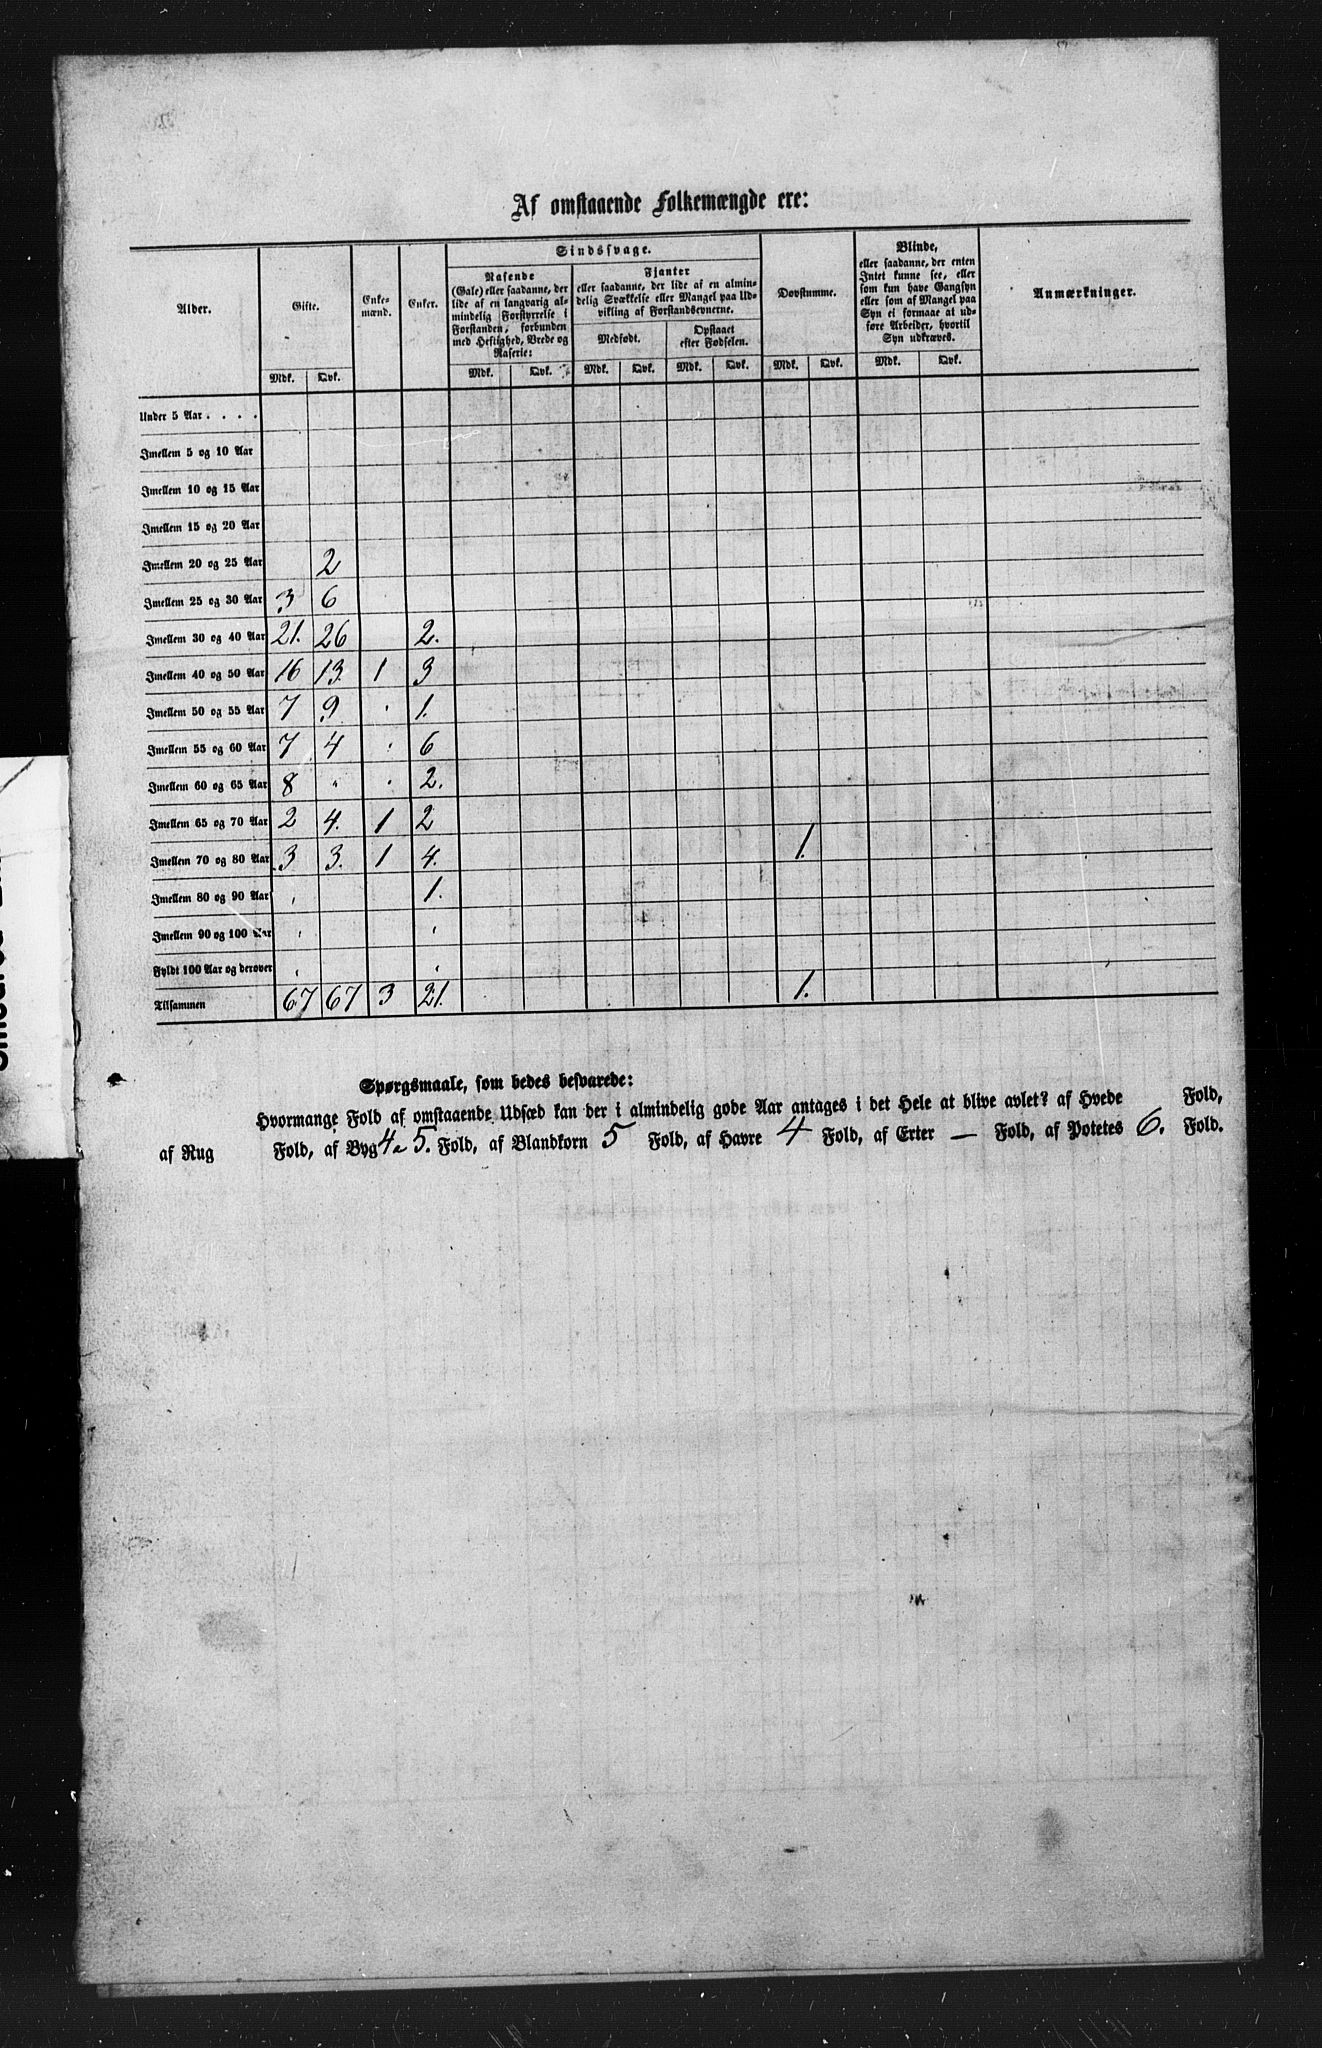 Af omstaaende Folkemængde ere:
Alder. Gifte. Enkemænd. Enker. Sindssvage. Dovstumme. Blinde, Anmærkninger.
Rasende
(Gale) eller saadanne, der
lide af en langvarig al-
mindelig Forstyrrelse i
Forstanden, forbunden
med Heftighed, Vrede og
Raserie:
Fjanter
eller saadanne, der lide af en almin-
delig Svækkelse eller Mangel paa Ud-
vikling af Forstandsevnerne.
Medfødt. Opstaaet
efter Fødselen.
eller saadanne, der enten
Intet kunne see, eller
som kun have Gangsyn
eller som af Mangel paa
Syn ei formaae at ud-
føre Arbeider, hvortil
Syn udkræves.
Mdk. Qvk. Mdk. Qvk. Mdk. Qvk. Mdk. Qvk. Mdk. Qvk. Mdk. Qvk.
Under 5 Aar . . . .
Imellem 5 og 10 Aar
Imellem 10 og 15 Aar
Imellem 15 og 20 Aar
Imellem 20 og 25 Aar 2
Imellem 25 og 30 Aar 3 6
Imellem 30 og 40 Aar 21. 26 2.
Imellem 40 og 50 Aar 16 13. 1 3
Imellem 50 og 55 Aar 7 9 1.
Imellem 55 og 60 Aar 7 4 6
Imellem 60 og 65 Aar 8 " 2.
Imellem 65 og 70 Aar 2 4. 1 2
Imellem 70 og 80 Aar 3 3. 1 4. 1.
Imellem 80 og 90 Aar 1.
Imellem 90 og 100 Aar
Fyldt 100 Aar og derover
Tilsammen 67 67 3 21. 1.
Spørgsmaale, som bedes besvarede:
Hvormange Fold af omstaaende Udsæd kan der i almindelig gode Aar antages i det Hele at blive avlet? af Hvede Fold,
af Rug Fold, af Byg 4 a 5. Fold, af Blandkorn 5 Fold, af Havre 4 Fold, af Erter — Fold, af Potetes 6. Fold.